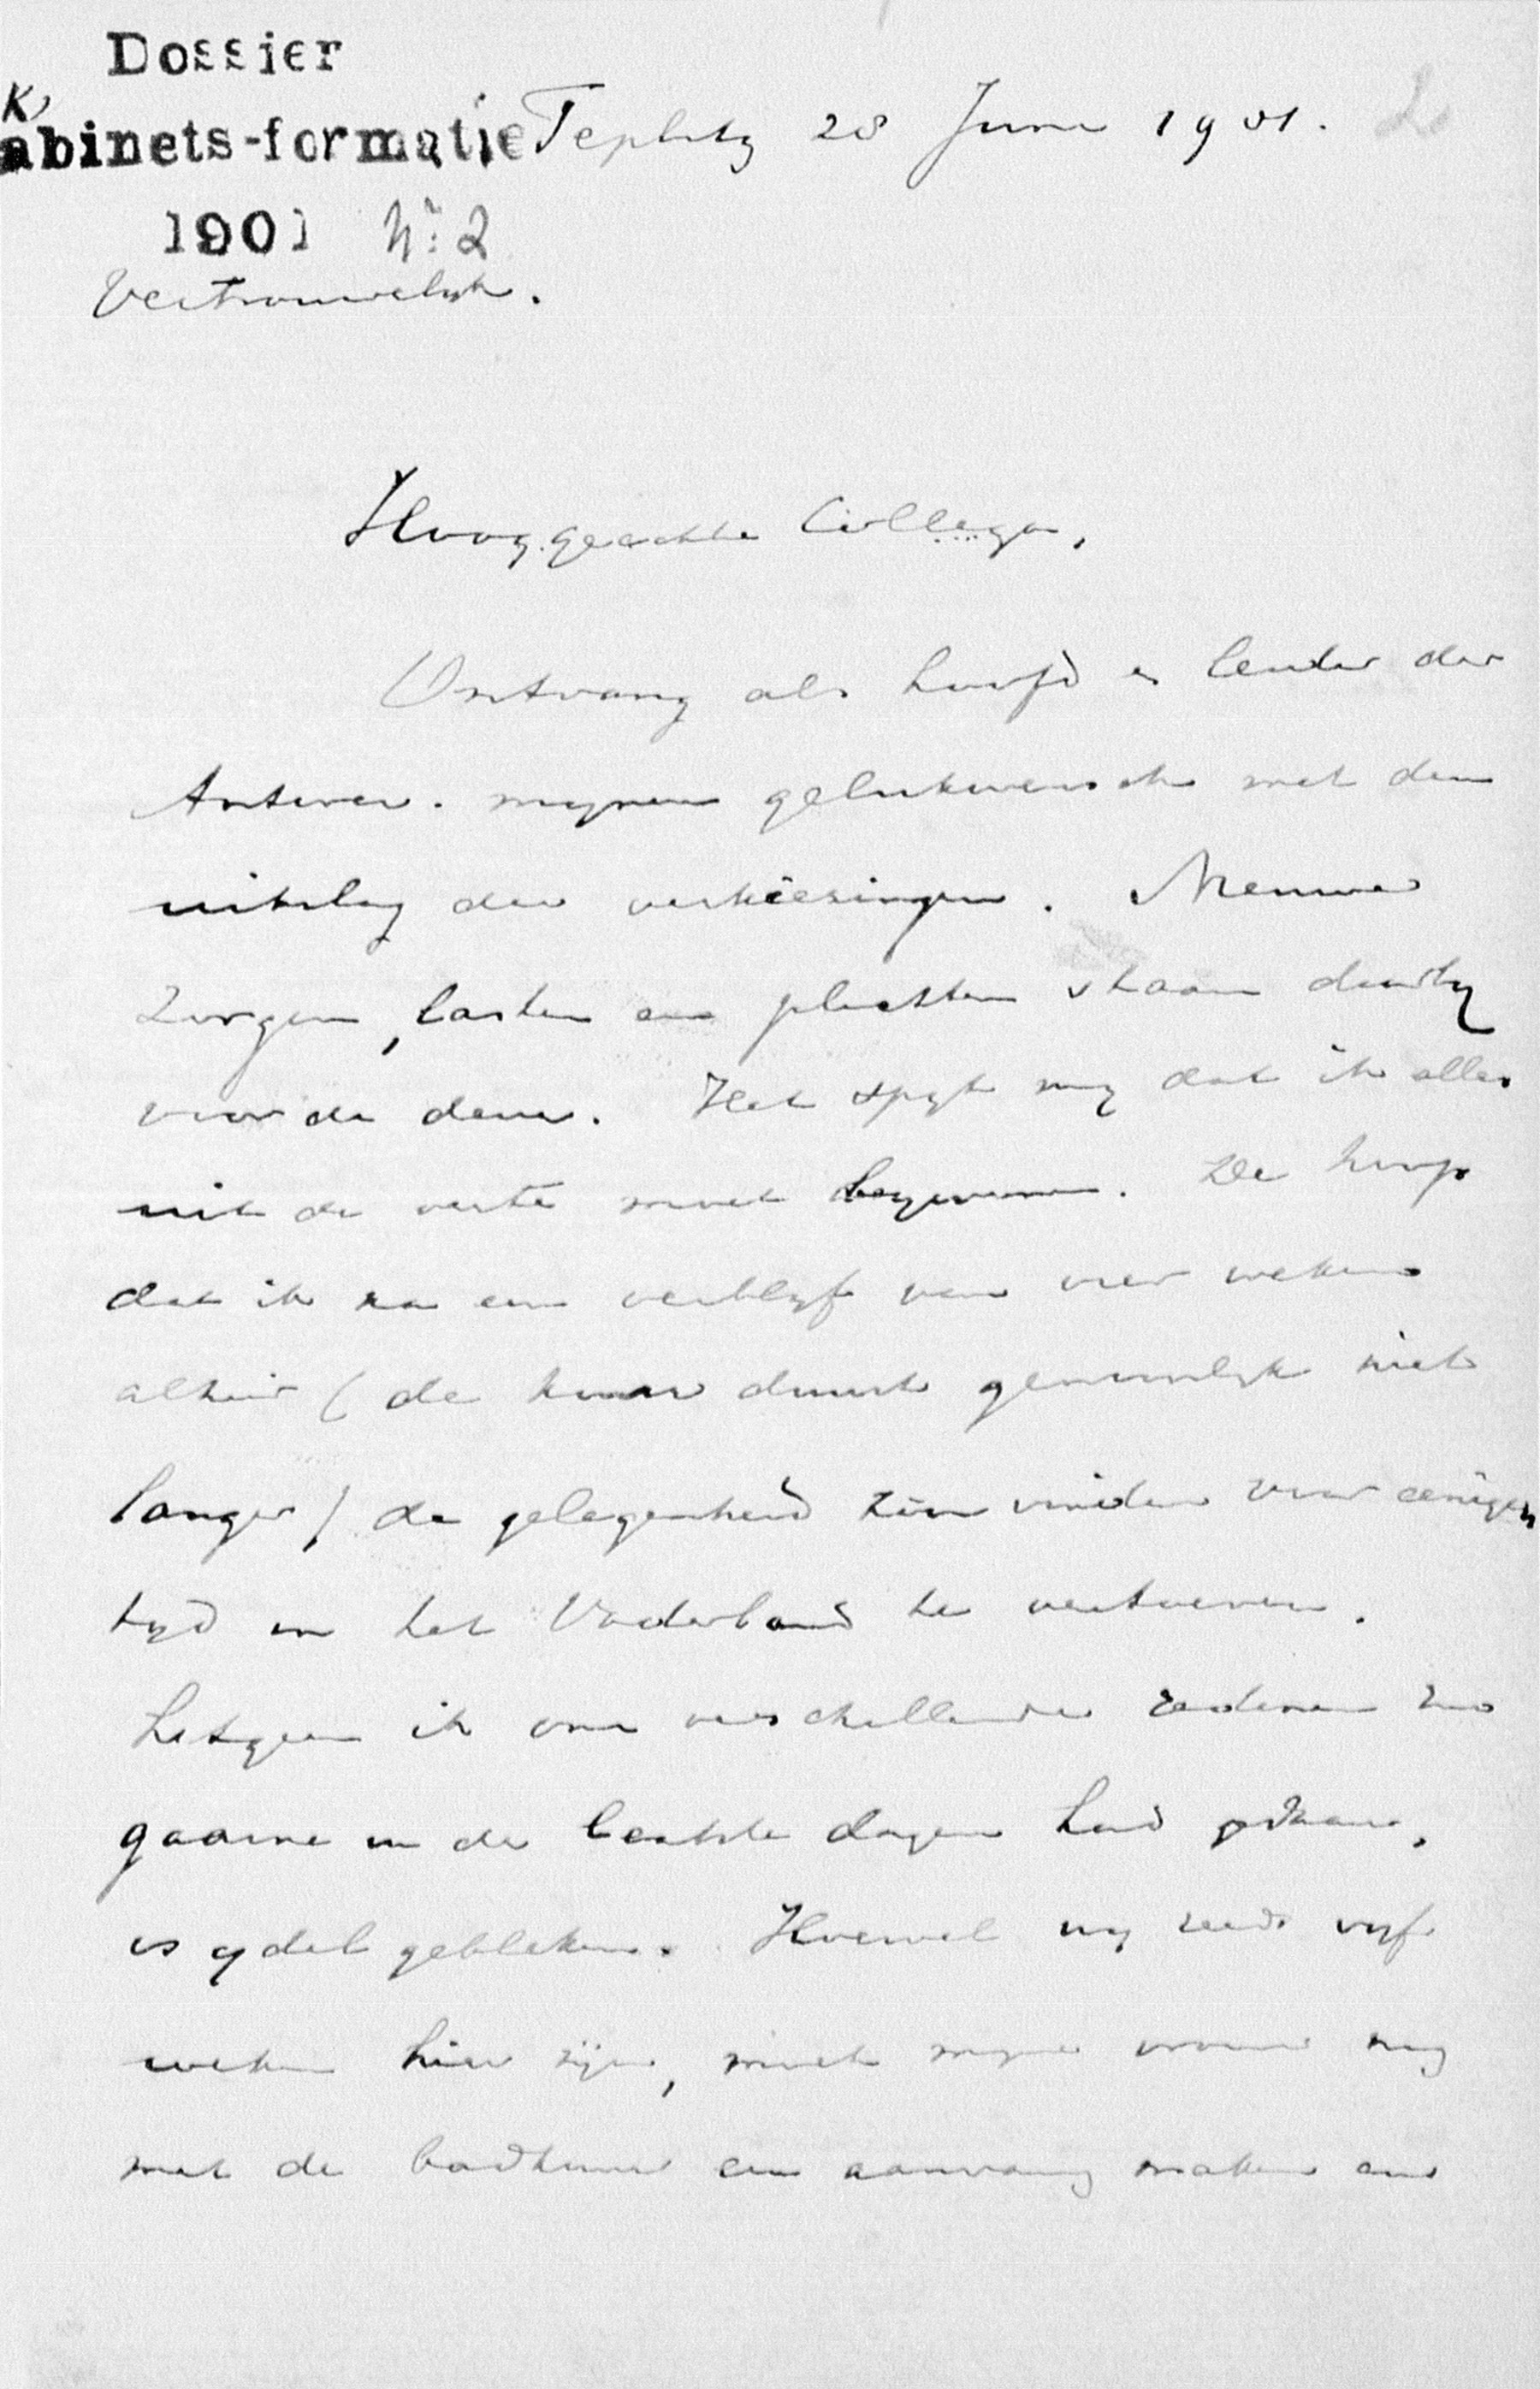 Dossier
Kabinets-formatie
1901 No: 2
Teplitz 28 Juni 1901.
Vertrouwelijk.
Hooggeachte Collega,
Ontvang als hoofd en leider der
Antirev. mijnen gelukwensch met den
uitslag der verkiezingen. Nieuwe
zorgen, lasten en plichten staan daarbij
voor de deur. Het spijt mij dat ik alles
uit de verte moet bijwonen. De hoop
dat ik na een verblijf van vier weken
alhier (de kuur duurt gewoonlijk niet
langer) de gelegenheid zou vinden voor eenigen
tijd in het Vaderland te vertoeven.
hetgeen ik om verschillende redenen zoo
gaarne in de laatste dagen had gedaan,
is ydel gebleken. Hoewel wij reeds vijf
weken hier zijn, moet mijne vrouw nog
met de badkuur een aanvang maken en